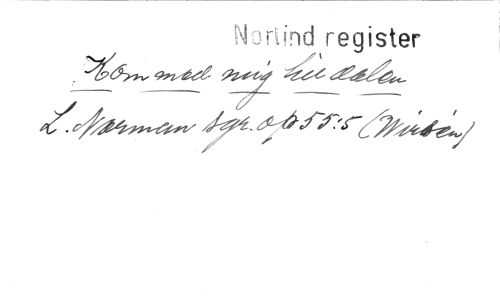 Nortind register
Kom med mig till dalen
L. Norman sgr. op 55:5 (Wirsén)